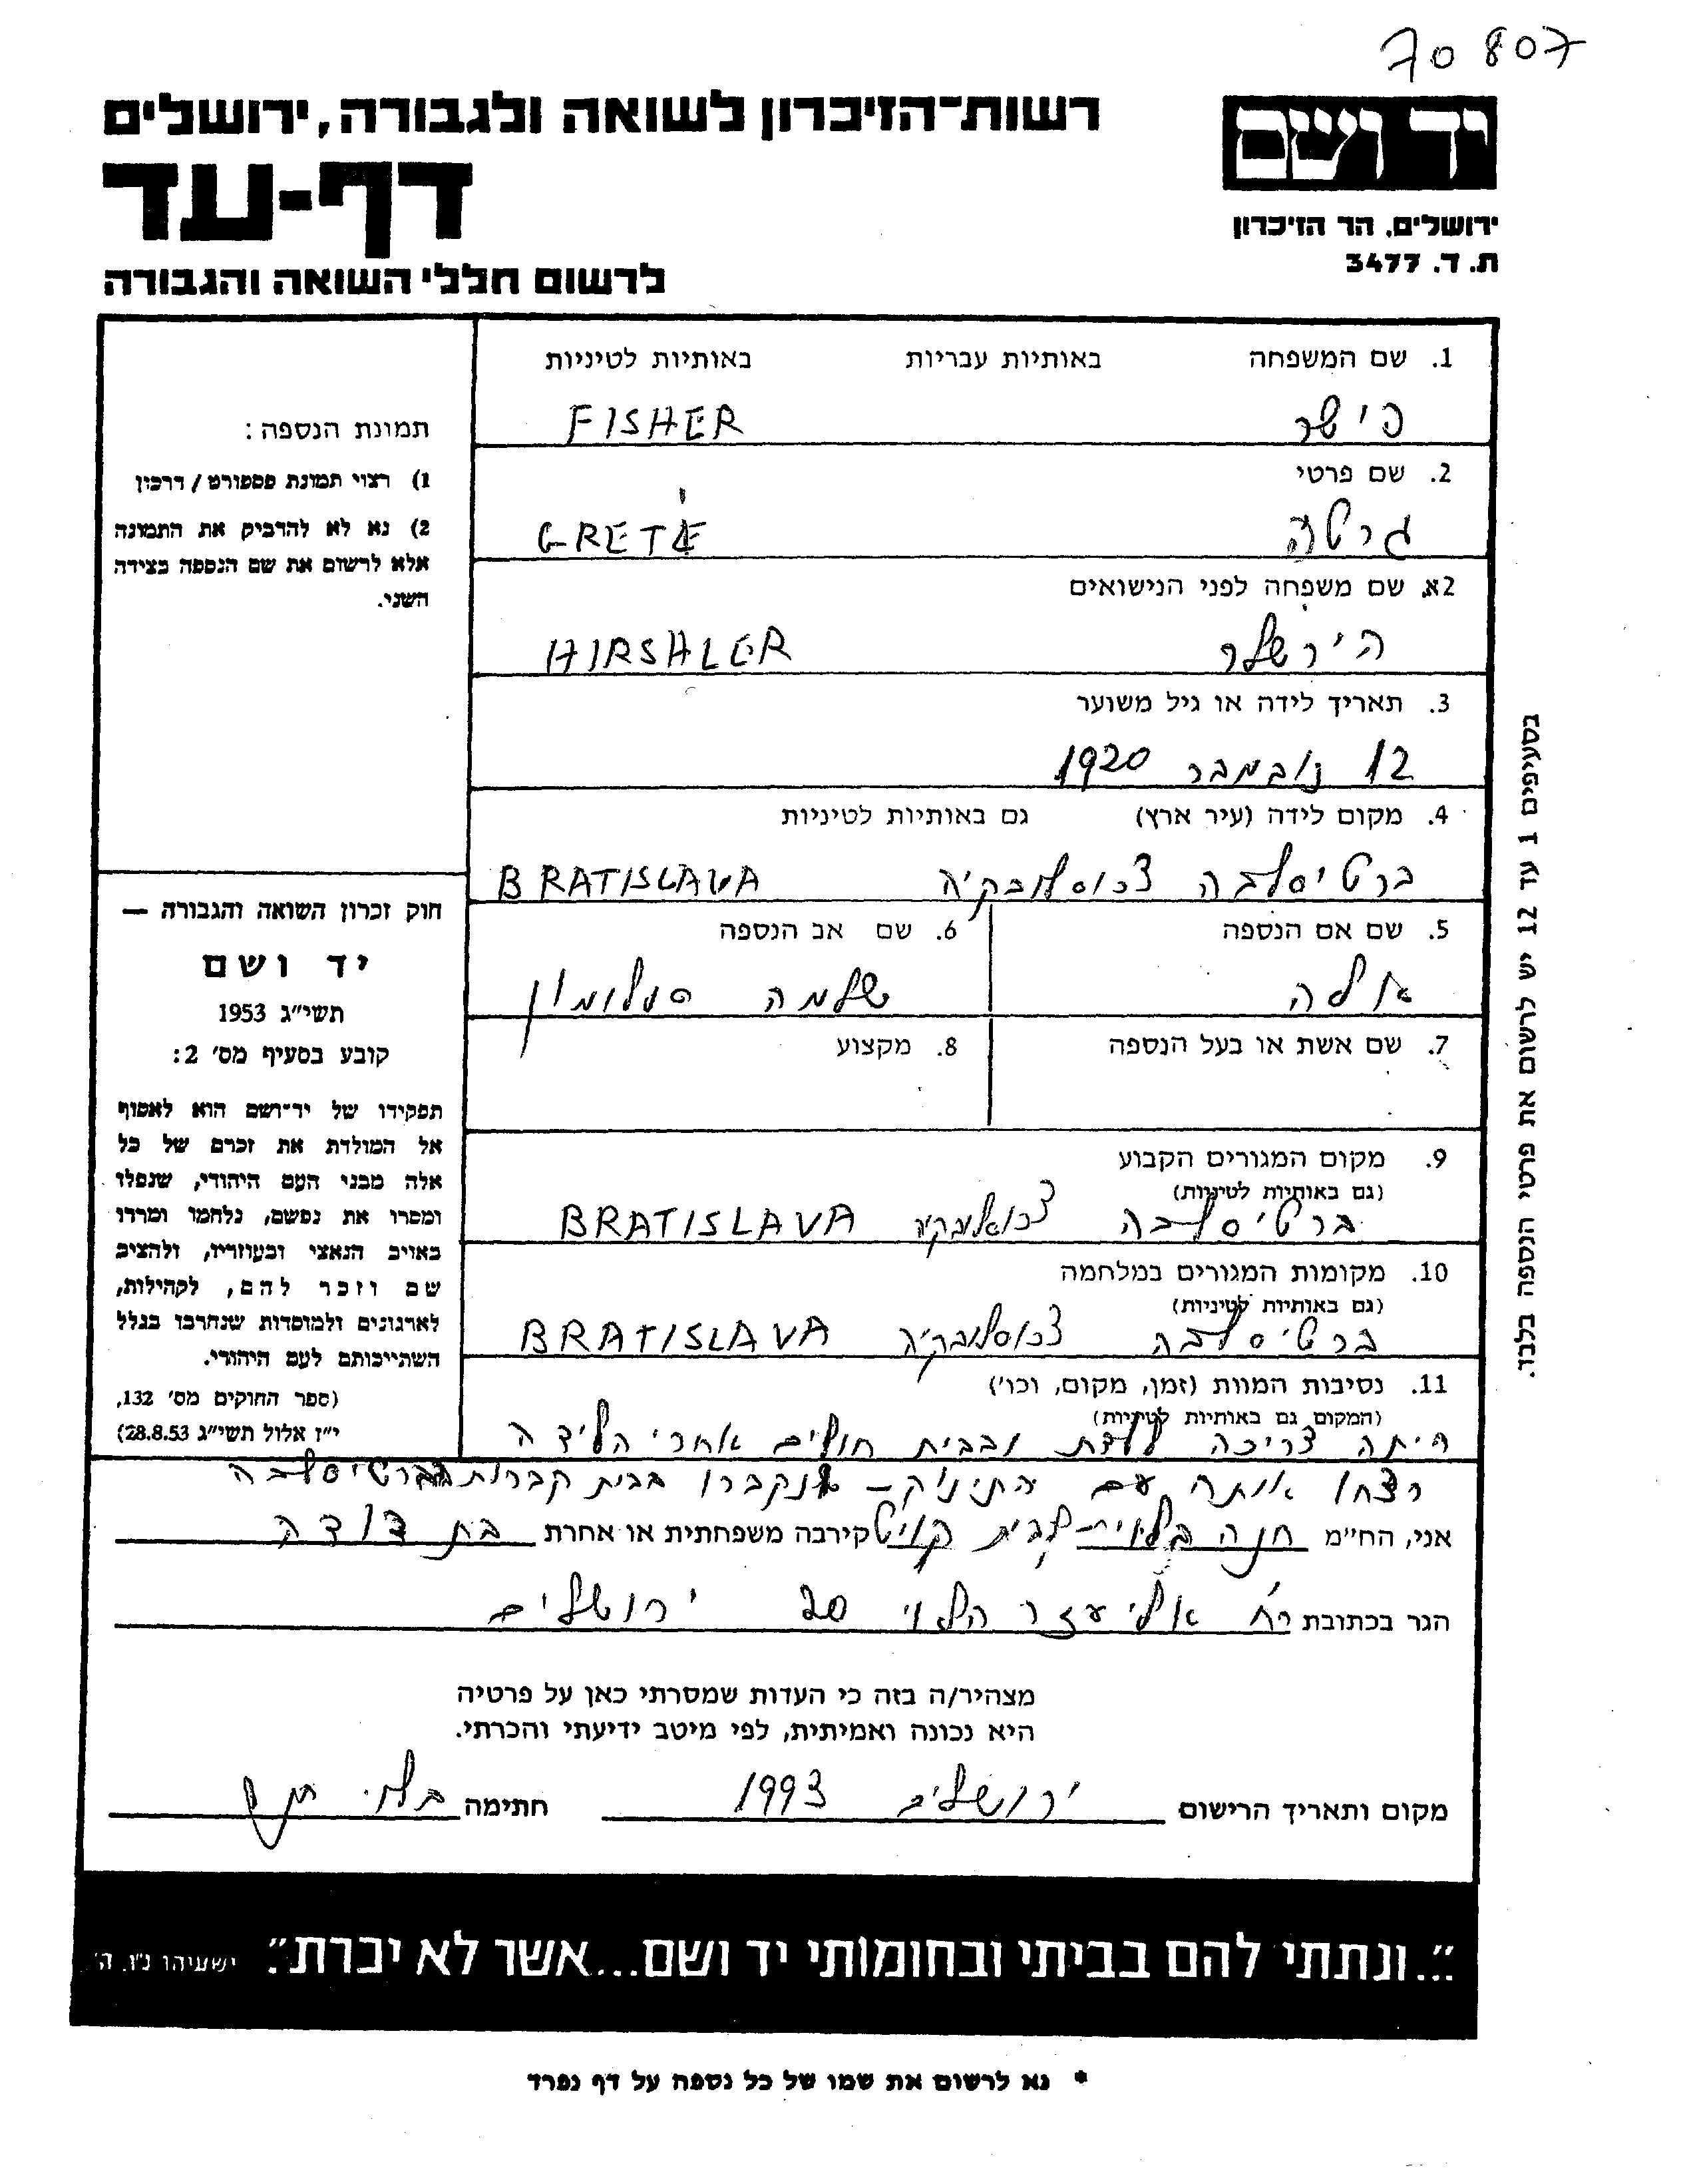 70807
רשות־הזיכרון לשואה ולגבורה, ירושלים
דף-עד
לרשום חללי השואה והגבורה
יד ושם
ירושלים, הר הזיכרון
ת. ד. 3477
1. שם המשפחה באותיות עבריות באותיות לטיניות
פישר FISHER
2. שם פרטי
גרטה GRETE
2א. שם משפחה לפני הנישואים
הירשלר HIRSHLER
3. תאריך לידה או גיל משוער
12 נובמבר 1920
4. מקום לידה (עיר ארץ) גם באותיות לטיניות
ברטיסלבה צכוסלובקיה BRATISLAVA
5. שם אם הנספה 6. שם אב הנספה
אלה שלמה סלומון
7. שם אשת או בעל הנספה 8. מקצוע
9. מקום המגורים הקבוע
(גם באותיות לטיניות)
ברטיסלבה BRATISLAVA
10. מקומות המגורים במלחמה
(גם באותיות לטיניות)
ברטיסלבה צכוסלובקיה BRATISLAVA
11. נסיבות המוות (זמן, מקום, וכו')
(המקום גם באותיות לטיניות)
היתה צריכה ללדת ובבית חולים אחרי הלידה
רצחו אותה עם התינוק – נקברו בבית קברות ברטיסלבה
אני, הח"מ חנה לבית קירבה משפחתית או אחרת בת דודה
הגר בכתובת רח' אליעזר הלוי 20 ירושלים
מצהיר/ה בזה כי העדות שמסרתי כאן על פרטיה
היא נכונה ואמיתית, לפי מיטב ידיעתי והכרתי.
מקום ותאריך הרישום ירושלים 1993 חתימה
תמונת הנספה:
1) רצוי תמונת פספורט / דרכון
2) נא לא להדביק את התמונה
אלא לרשום את שם הנספה בצידה
השני.
חוק זכרון השואה והגבורה —
יד ושם
תשי"ג 1953
קובע בסעיף מס' 2:
תפקידו של יד־ושם הוא לאסוף
אל המולדת את זכרם של כל
אלה מבני העם היהודי, שנפלו
ומסרו את נפשם, נלחמו ומרדו
באויב הנאצי ובעוזריו, ולהציב
שם וזכר להם, לקהילות,
לארגונים ולמוסדות שנחרבו בגלל
השתייכותם לעם היהודי.
(ספר החוקים מס' 132,
י"ז אלול תשי"ג 28.8.53)
בסעיפים 1 עד 12 יש לרשום את פרטי הנספה בלבד.
"...ונתתי להם בביתי ובחומותי יד ושם...אשר לא יכרת". ישעיהו נ"ו, ה'
* נא לרשום את שמו של כל נספה על דף נפרד